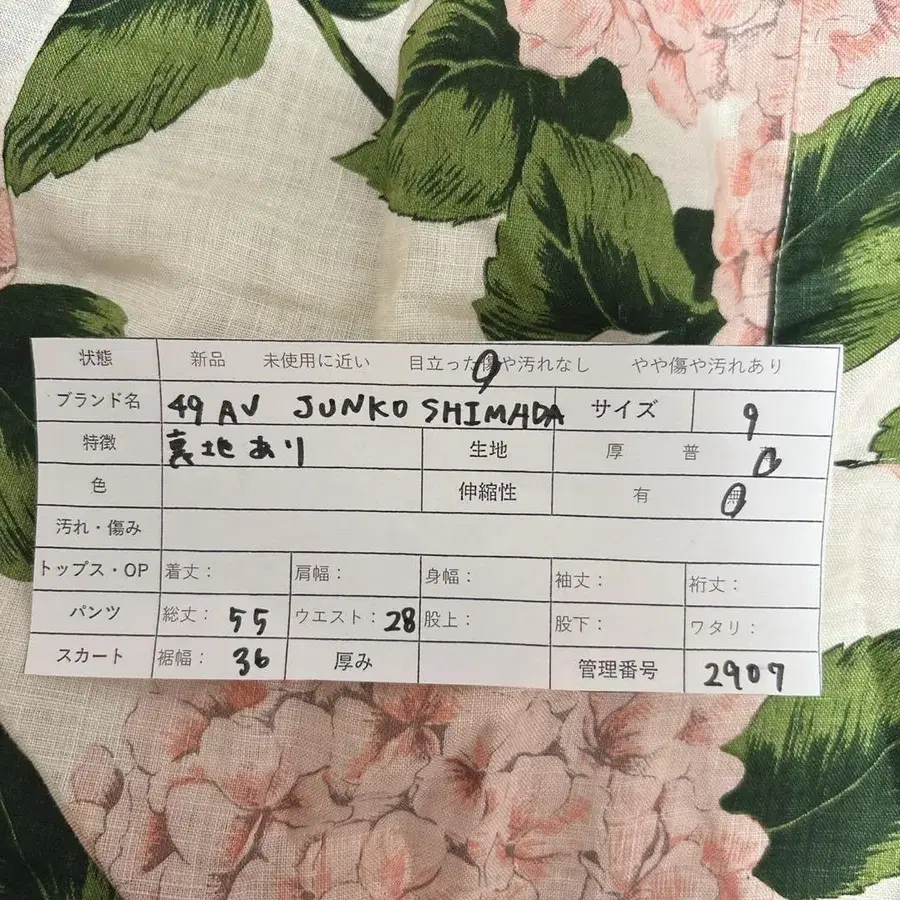 状態 新品 未使用に近い 目立った傷や汚れなし やや傷や汚れあり
ブランド名 49 AV JUNKO SHIMADA サイズ 9
特徴 裏地あり 生地 厚 普
色 伸縮性 有 無
汚れ・傷み
トップス・OP 着丈: 肩幅: 身幅: 袖丈: 裄丈:
パンツ 総丈: 55 ウエスト: 28 股上: 股下: ワタリ:
スカート 裾幅: 36 厚み 管理番号 2907